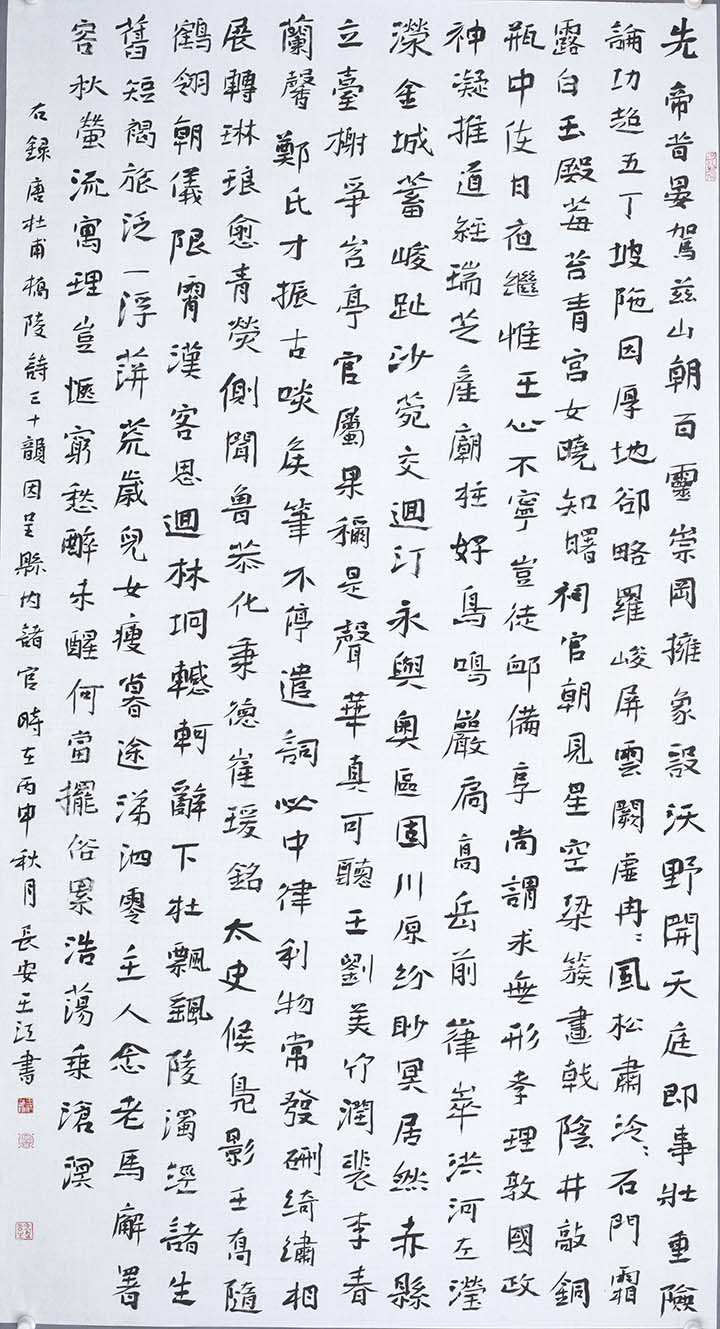 先帝昔晏駕茲山朝百靈崇岡擁象設沃野開天庭即事壯重險
論功超五丁坡陁因厚地卻略羅峻屏雲闕虛冉〻風松肅泠〻石門霜
露白玉殿莓苔青宮女曉知曙祠官朝見星空梁簇畫戟陰井敲銅
瓶中使日夜繼惟王心不寧豈徒卹備享尚謂求無形孝理敦國政
神凝推道經瑞芝產廟柱好鳥鳴巖扃高岳前嵂崒洪河左瀅
濴金城蓄峻趾沙苑交迴汀永與奧區固川原紛眇冥居然赤縣
立臺榭爭岧亭官屬果稱是聲華真可聽王劉美竹潤裴李春
蘭馨鄭氏才振古啖侯筆不停遣詞必中律利物常發硎綺繡相
展轉琳琅愈青熒側聞魯恭化秉德崔瑗銘太史候鳧影王喬隨
鶴翎朝儀限霄漢客思迴林坰轗軻辭下杜飄颻陵濁涇諸生
舊短褐旅泛一浮萍荒歲兒女瘦暮途涕泗零主人念老馬廨署
容秋螢流寓理豈愜窮愁醉未醒何當擺俗累浩蕩乘滄溟
右録唐杜甫橋陵詩三十韻因呈縣內諸官時在丙申秋月長安王江書